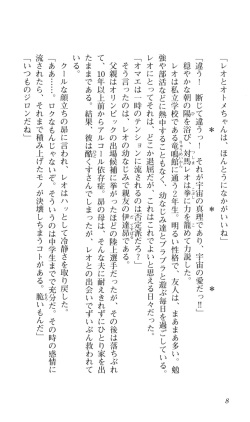 ＊　＊　＊
「レオとオトメちゃんは、ほんとうになかがいいね
「違う！　断じて違うっ！　それが宇宙の真理であり、宇宙の愛だっ‼」
穏やかな朝の陽を浴びて、対馬レオは拳に力を籠めて力説した。
レオは私立学校である竜鳴館に通う２年生。明るい性格で、友人は、まあまあ多い。勉
強や部活などに熱中することもなく、幼なじみ達とブラブラと遊ぶ毎日を過ごしている。
レオにとってそれは、どこか退屈だが、これはこれでよいと思える日々だった。
「オマエは一時のテンションに流されるのは否定派だろ？」
そう言ったのは、レオの幼なじみで親友の伊達昴である。
父親はオリンピック出場候補に挙がったほどの陸上選手だったが、その後は落ちぶれ
て、10年以上前からアルコール依存症。昴の母は、そんな夫に耐えきれずにひとり家を出
たままである。結果、彼は酷くすさんでしまったが、レオとの出会いでずいぶん救われて
きた。
クールな顔立ちの昴に言われ、レオはハッとして冷静さを取り戻した。
「ああ……。ロクなもんじゃないぞ、そういうのは中学生まで充分だ。その時の感情に
流されたら、それまで積み上げたモノが決壊しちまうコトがある。脆いもんだ」
「いつものジロンだね」
8